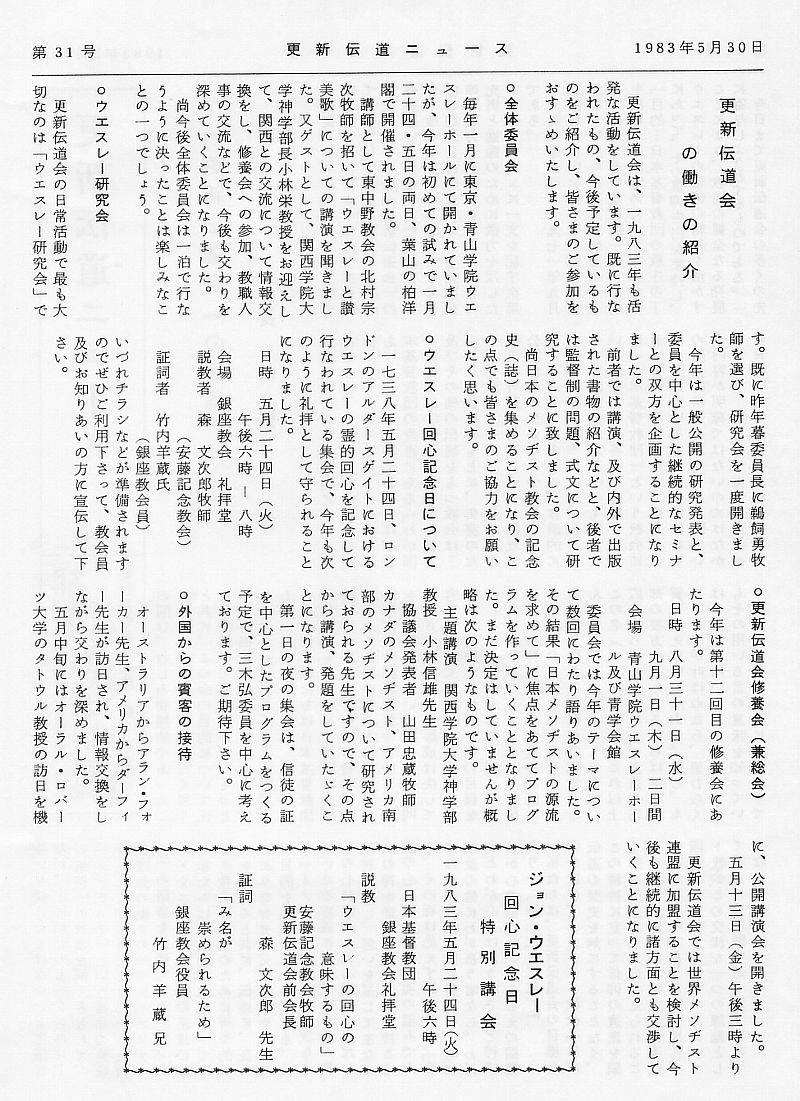 第31号
更新伝道ニュース
1983年5月30日
更新伝道会
の働きの紹介
更新伝道会は、一九八三年も活
発な活動をしています。既に行な
われたもの、今後予定しているも
のをご紹介し、皆さまのご参加を
おすゝめいたします。
○全体委員会
毎年一月に東京・青山学院ウエ
スレーホールにて開かれていまし
たが、今年は初めての試みで一月
二十四・五日の両日、葉山の柏洋
閣で開催されました。
講師として東中野教会の北村宗
次牧師を招いて「ウエスレーと讃
美歌」についての講演を聞きまし
た。又ゲストとして、関西学院大
学神学部長小林栄教授をお迎えし
て、関西との交流について情報交
換をし、修養会への参加、教職人
事の交流などで、今後も交わりを
深めていくことになりました。
尚今後全体委員会は一泊で行な
うように決ったことは楽しみなこ
との一つでしょう。
○ウエスレー研究会
更新伝道会の日常活動で最も大
切なのは「ウエスレー研究会」で
す。既に昨年暮委員長に鵜飼勇牧
師を選び、研究会を一度開きまし
た。
今年は一般公開の研究発表と、
委員を中心とした継続的なセミナ
ーとの双方を企画することになり
ました。
前者では講演、及び内外で出版
された書物の紹介などと、後者で
は監督制の問題、式文について研
究することに致しました。
尚日本のメソヂスト教会の記念
史（誌）を集めることになり、こ
の点でも皆さまのご協力をお願い
したく思います。
○ウエスレー回心記念日について
一七三八年五月二十四日、ロン
ドンのアルダースゲイトにおける
ウエスレーの霊的回心を記念して
行なわれている集会で、今年も次
のように礼拝として守られること
になりました。
日時　五月二十四日（火）
午後六時―八時
会場　銀座教会　礼拝堂
説教者　森　文次郎牧師
（安藤記念教会）
証詞者　竹内羊蔵氏
（銀座教会員）
いづれチラシなどが準備されます
のでぜひご利用下さって、教会員
及びお知りあいの方に宣伝して下
さい。
○更新伝道会修養会（兼総会）
今年は第十二回目の修養会にあ
たります。
日時　八月三十一日（水）
九月一日（木）　二日間
会場　青山学院ウエスレーホー
ル及び青学会館
委員会では今年のテーマについ
て数回にわたり語りあいました。
その結果「日本メソヂストの源流
を求めて」に焦点をあててプログ
ラムを作っていくこととなりまし
た。まだ決定はしていませんが概
略は次のようなものです。
主題講演　関西学院大学神学部
教授　小林信雄先生
協議会発表者　山田忠蔵牧師
カナダのメソヂスト、アメリカ南
部のメソヂストについて研究され
ておられる先生ですので、その点
から講演、発題をしていたゞくこ
とになります。
第一日の夜の集会は、信徒の証
を中心としたプログラムをつくる
予定で、三木弘委員を中心に考え
ております。ご期待下さい。
○外国からの賓客の接待
オーストラリアからアラン・フォ
ーカー先生、アメリカからダーフィ
ー先生が訪日され、情報交換をし
ながら交わりを深めました。
五月中旬にはオーラル・ロバー
ツ大学のタトウル教授の訪日を機
に、公開講演会を開きました。
五月十三日（金）午後三時より
更新伝道会では世界メソヂスト
連盟に加盟することを検討し、今
後も継続的に諸方面とも交渉して
いくことになりました。
ジョン・ウエスレー
回心記念日
特別講会
一九八三年五月二十四日（火）
午後六時
日本基督教団
銀座教会礼拝堂
説教
「ウエスレーの回心の
意味するもの」
安藤記念教会牧師
更新伝道会前会長
森　文次郎　先生
証詞
「み名が
崇められるため」
銀座教会役員
竹内羊蔵兄